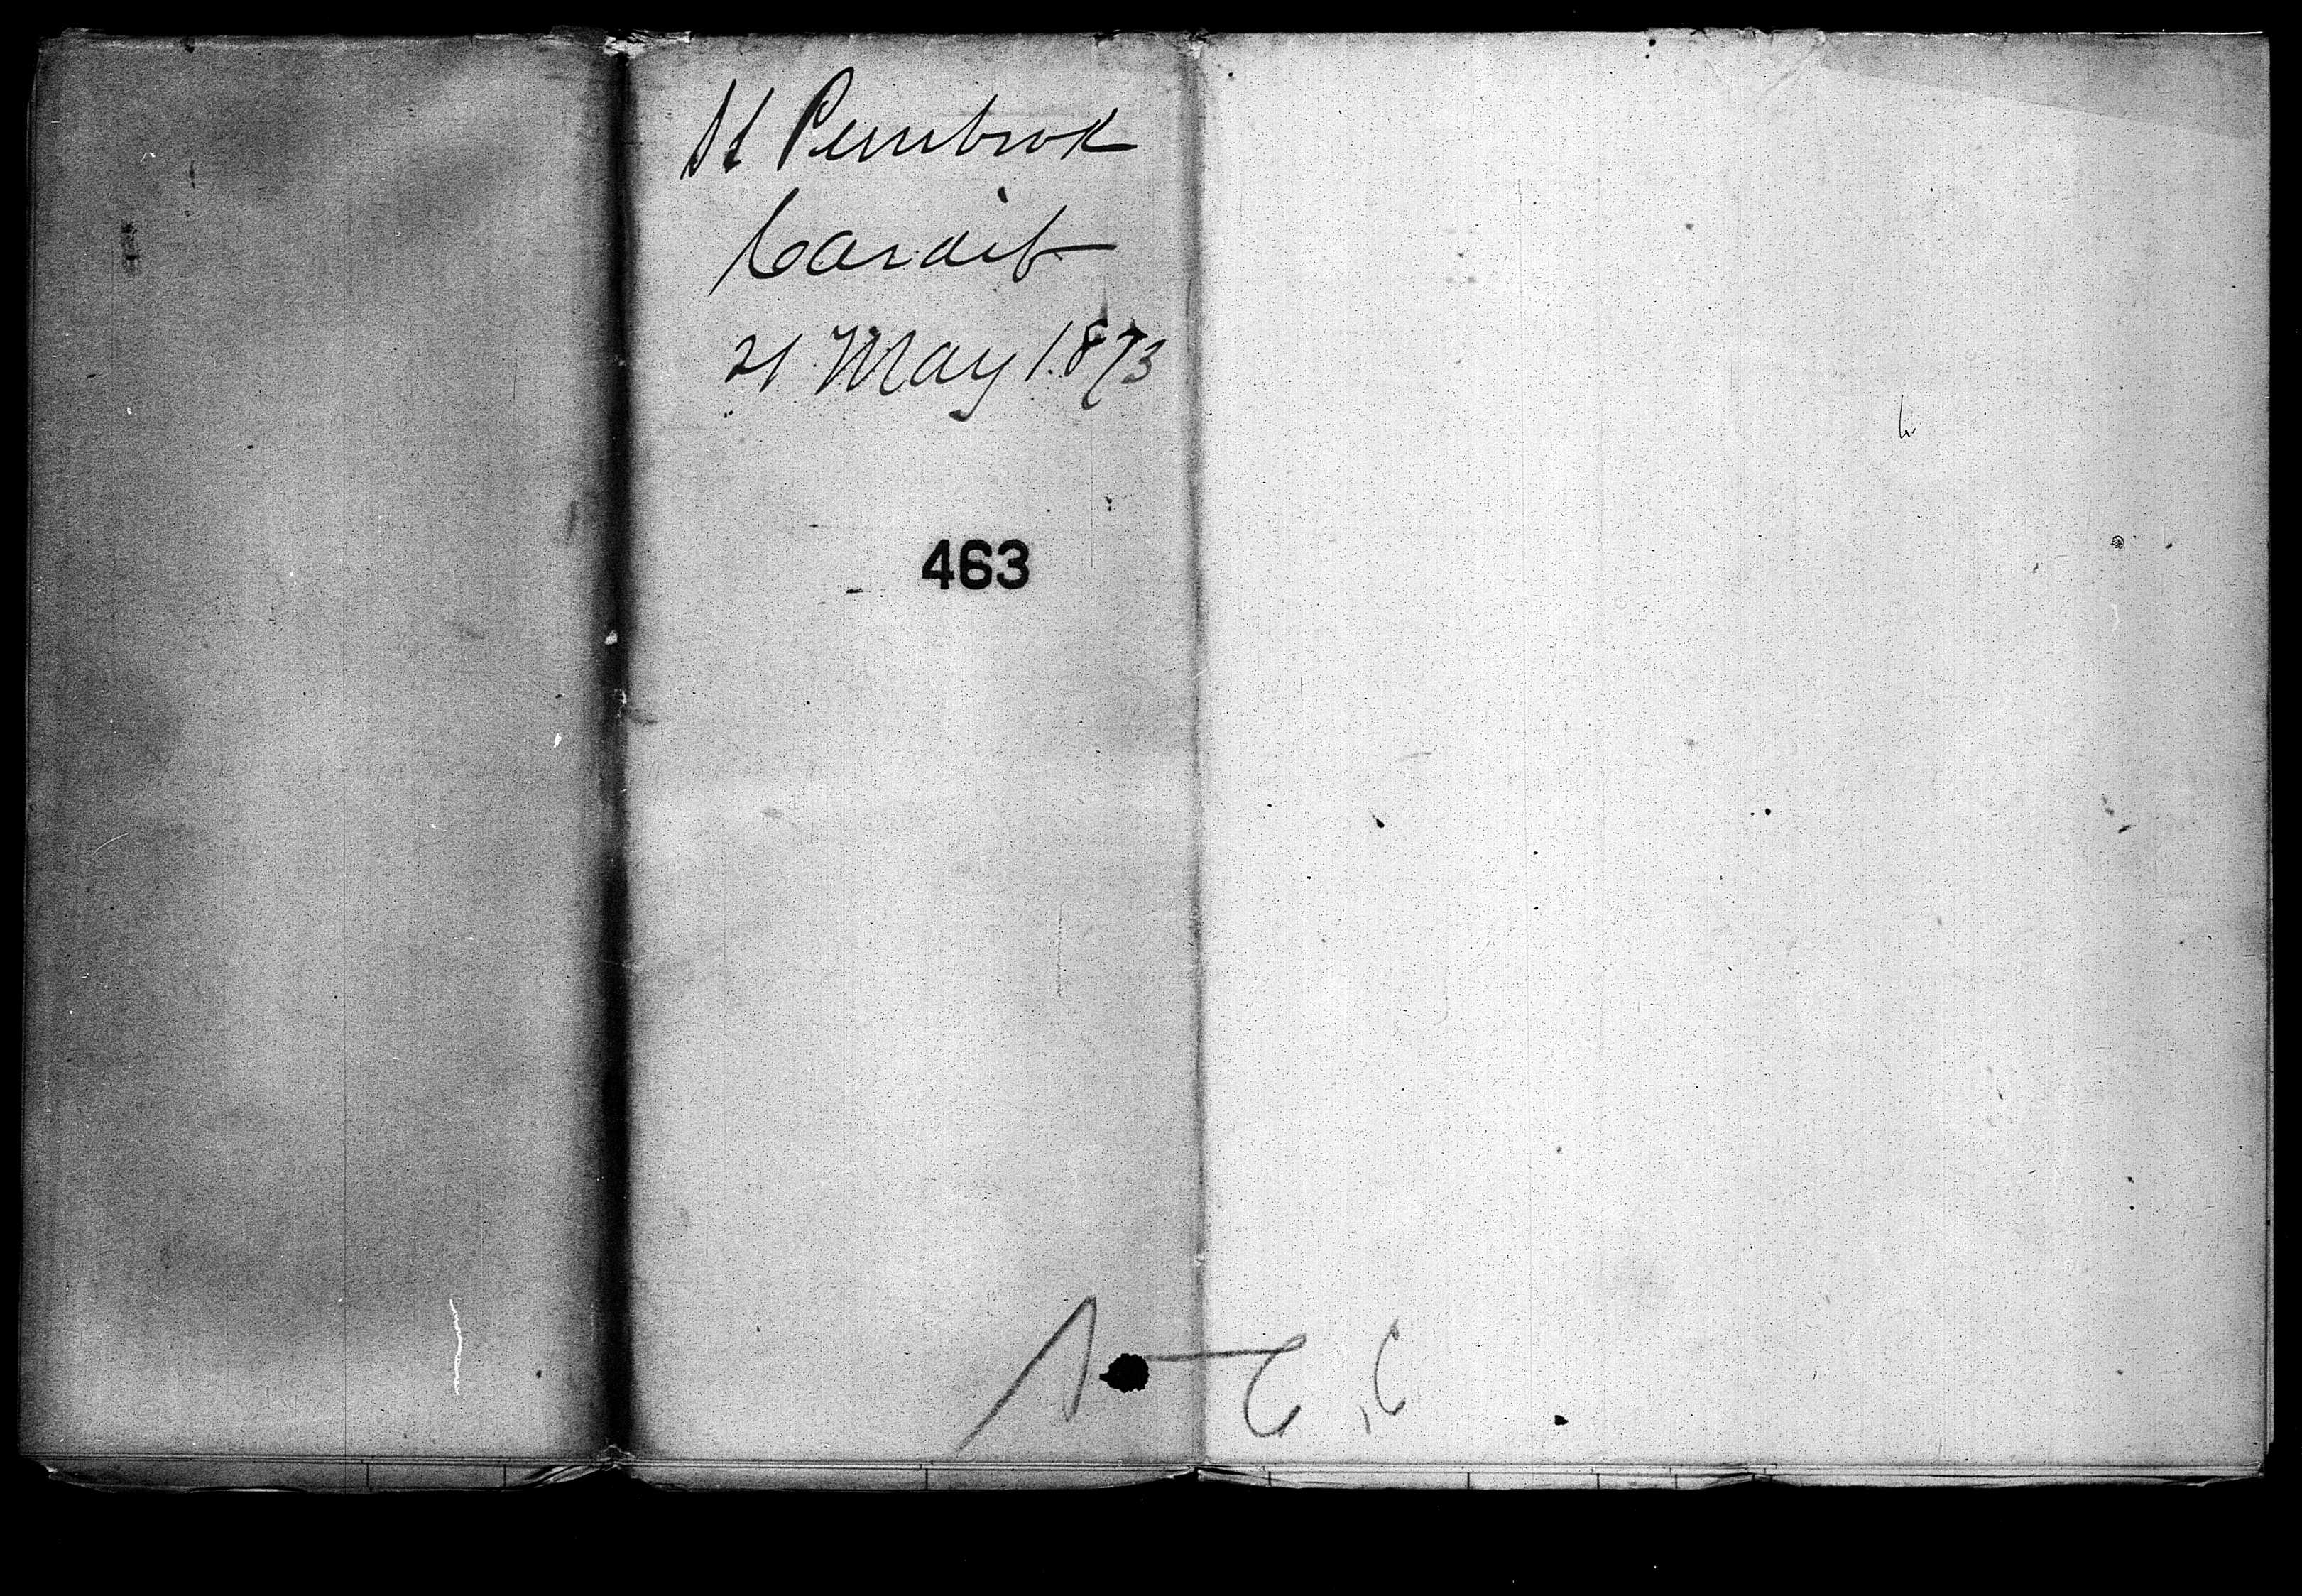 St Pembrok
Cardif
21 May 1873
463